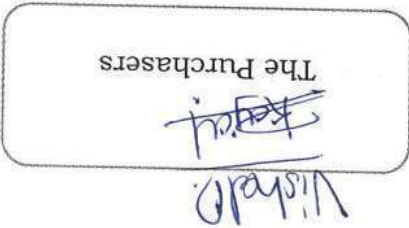 Vishal D.
The Purchasers